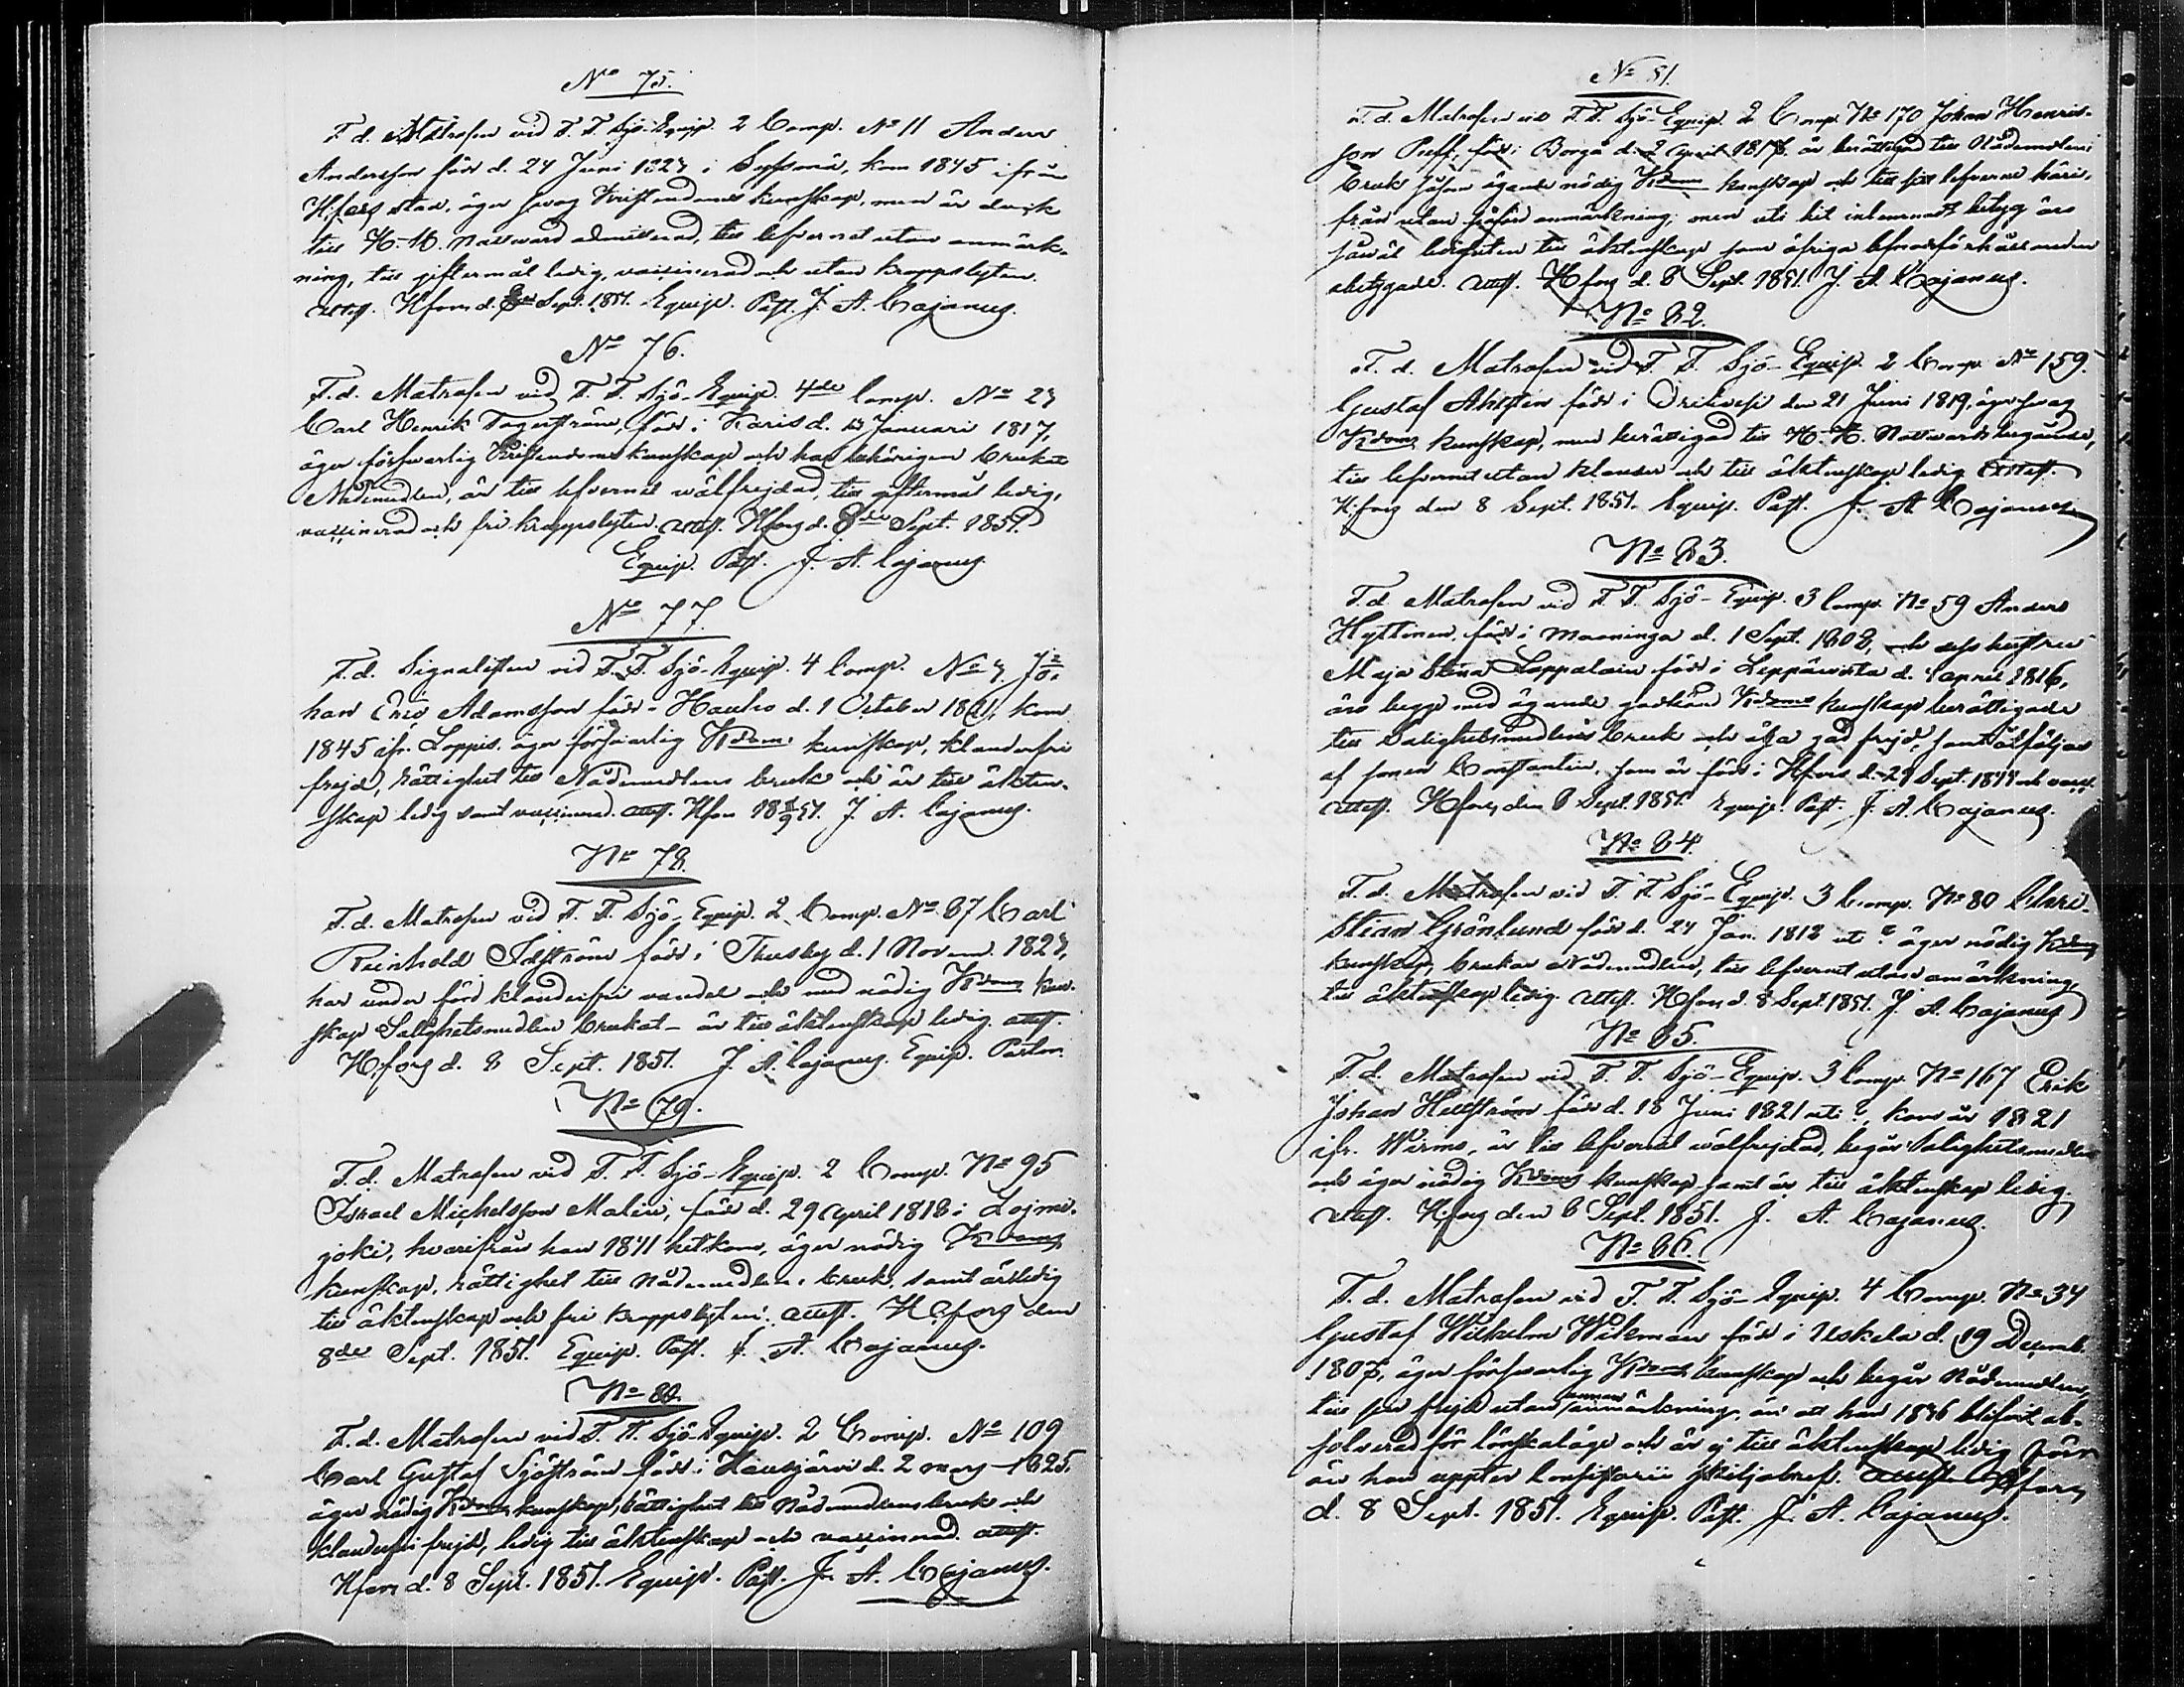 No 75.
F. d. Matrosen vid F. F. Sjö-Equip. 2 Comp. No 11 Anders
Andersson född d. 24 Juni 1823 i Sysmä, kom 1845 ifrån
H:fors stad, äger svag Kristendoms kunskap, men är dock
till H. H. Nattvard admitterad, till lefvernet utan anmärk-
ning, till giftermål ledig, vaccinerad och utan kroppslyten.
attest. Hfors d. 8de Sept. 1851. Equip. Past. J. A. Cajanus.
No 76.
F. d. Matrosen vid F. F. Sjö-Equip. 4de Comp. No 23
Carl Henrik Fagerström, född i Karis d. Januari 1817,
äger försvarlig Kristendoms kunskap och har behörigen brukat
Nådemedlen, är till lefvernet wälfrejdad, till giftermål ledig,
vaccinerad och fri kroppslyten. attest. Hfors d. 8de Sept. 1851.
Equip. Past. J. A. Cajanus
No 77.
F. d. Signalisten vid F. F. Sjö-Equip. 4 Comp. No 3 Jo-
han Eric Adamsson född i Hauho d. 1 October 1821, kom
1845 ifr. Loppis, äger försvarlig Kdoms kunskap, klanderfri
frejd, rättighet till Nådemedlens bruk och är till äkten-
skap ledig samt vaccinerad. attest. Hfors 18 8/9 51. J. A. Cajanus.
No 78.
F. d. Matrosen vid F. F. Sjö-Equip. 2 Comp. No 87 Carl
Reinhold Idström född i Thusby d. 1 Novem. 1823,
har under förd klanderfri vandel och med nödig Kdoms kun-
skap Salighetsmedlen brukat - är till äktenskap ledig. attest.
H:fors d. 8 Sept. 1851. J. A. Cajanus. Equip. Pastor.
No 79.
F. d. Matrosen vid F. F. Sjö-Equip. 2 Comp. No 95
Israel Michelsson Malin, född d. 29 April 1818 i Lojmi-
joki, hvarifrån han 1841 hitkom, äger nödig Kdoms
kunskap, rättighet till Nådemedlens bruk, samt är ledig
till äktenskap och fri kroppslyten. attest. H:fors den
8de Sept. 1851. Equip. Past. J. A. Cajanus.
No 80.
F. d. Matrosen vid F. F. Sjö-Equip. 2 Comp. No 109
Carl Gustaf Sjöström född i Hausjärvi d. 2 mars 1825,
äger nödig Kdoms kunskap, rättighet till Nådemedlens bruk och
klanderfri frejd, ledig till äktenskap och vaccinerad. attest.
Hfors d. 8 Sept. 1851. Equip. Past. J. A. Cajanus.
No 81.
F. d. Matrosen vid F. F. Sjö-Equip. 2 Comp. No 170 Johan Henriks-
son född i Borgå d. 2 April 1817, är berättigad till Nådemedlens
bruk såsom ägande nödig Kdoms kunskap och till sitt lefverne häri-
från utan anmärkning; men uti hit inlemnadt betyg äro
såväl ledigheten till äktenskap som öfriga lefnadsförhållanden
obetygade. attest. Hfors d. 8 Sept. 1851. J. A. Cajanus.
No 82.
F. d. Matrosen vid F. F. Sjö-Equip. 2 Comp. No 159.
Gustaf Ahlstén född i Orihvesi den 21 Juni 1819, äger svag
Kdoms kunskap, men berättigad till H. H. Nattvards begående,
till lefvernet utan klander och till äktenskap ledig attest.
H:fors den 8 Sept. 1851. Equip. Past. J. A. Cajanus.
No 83.
F. d. Matrosen vid F. F. Sjö-Equip. 3 Comp. No 59 Anders
Hyttinen, född i Maaninga d. 1 Sept. 1808, och dess hustru
Maja Stina Lappalain född i Leppävirta d. 4 april 1816,
äro begge med ägande godkänd Kdoms kunskap berättigade
till Salighetsmedlens bruk och äga god frejd, samt åtföljas
af sonen Constantin, som är född i Hfors d. 29 Sept. 1844 och vacc.
attest. Hfors den 8 Sept. 1851. Equip. Past. J. A. Cajanus.
No 84.
F. d. Matrosen vid F. F. Sjö-Equip. 3 Comp. No 80 Chri-
stian Grönlund född d. 24 Jan. 1812 uti ? äger nödig Kdoms
kunskap, brukar Nådemedlen, till lefvernet utan anmärkning,
till äktenskap ledig. attest. Hfors d. 8 Sept. 1851. J. A. Cajanus
No 85.
F. d. Matrosen vid F. F. Sjö-Equip. 3 Comp. No 167 Erik
Johan Hellström född d. 18 Juni 1821 uti ?, kom år 1821
ifr. Wirmo, är till lefvernet wälfrejdad, begår Salighetsmedlen
och äger nödig Kdoms kunskap samt är till äktenskap ledig.
attest. H:fors den 8 Sept. 1851. J. A. Cajanus.
No 86.
F. d. Matrosen vid F. F. Sjö-Equip. 4 Comp. No 34
Gustaf Wilhelm Wikman född i Uskela d. 19 Decemb.
1807, äger försvarlig Kdoms kunskap och begår Nådemedlen,
till sin frejd utan annan anmärkning, än att han 1846 blifvit ab-
solverad för lönskaläge och är ej till äktenskap ledig förr
än han upptar Consistorii skiljobref. attest. Hfors
d. 8 Sept. 1851. Equip. Past. J. A. Cajanus.